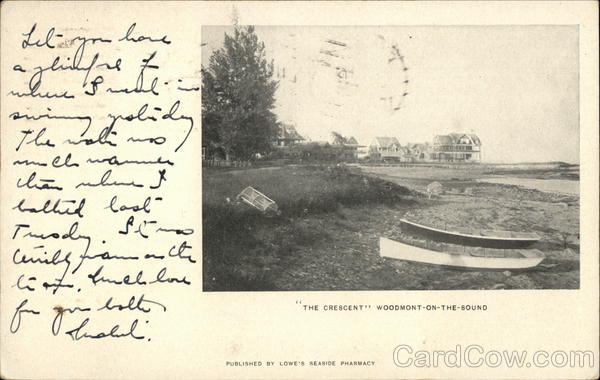 Let you have
a glimpse of
where I went in
swimming yesterday
The water was
much warmer
than where I
bathed last
Tuesday. It was
terribly warm on the
train. Much love
for you both
"THE CRESCENT" WOODMONT-ON-THE-SOUND
PUBLISHED BY LOWE'S SEASIDE PHARMACY
CardCow.com